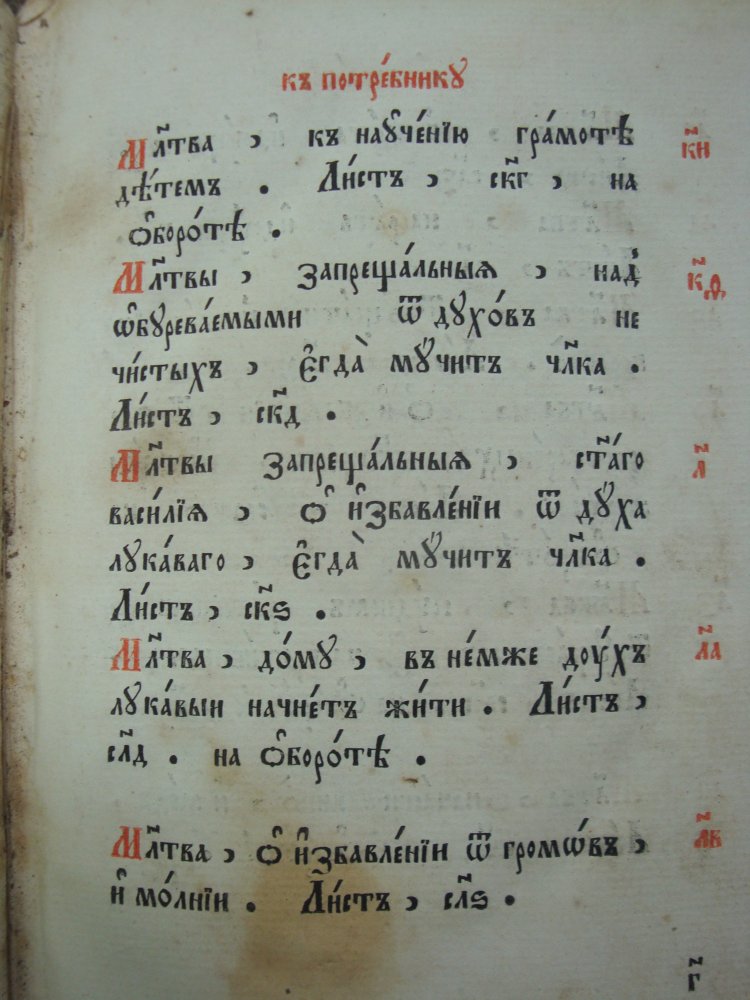 къ потре́бникꙋ
Мл҃тва , къ наꙋче́нїю гра́мотѣ к҃и
дѣ́темъ . Ли́стъ , ск҃г , на
ѻ҆боро́тѣ .
Мл҃твы , запреща́льныѧ , над̾ к҃ѳ
ѡ҆бурева́емыми ѿ духо́въ не
чи́стыхъ , є҆гда̀ мꙋ́читъ чл҃ка .
Ли́стъ , ск҃д .
Мл҃твы запреща́льныѧ , ст҃а́го л҃
васи́лїѧ , ѻ҆ и҆збавле́нїи ѿ дꙋ́ха
лука́ваго , є҆гда̀ мꙋ́читъ чл҃ка .
Ли́стъ , ск҃ѕ .
Мл҃тва , до́мꙋ , въ не́мже доу́хъ л҃а
лука́выи начне́тъ жи́ти . Ли́стъ ,
сл҃д . на ѻ҆боро́тѣ .
Мл҃тва , ѻ҆ и҆збавле́нїи ѿ громѡ́въ , л҃в
и҆ мо́лнїи . Ли́стъ , сл҃ѕ .
г҃